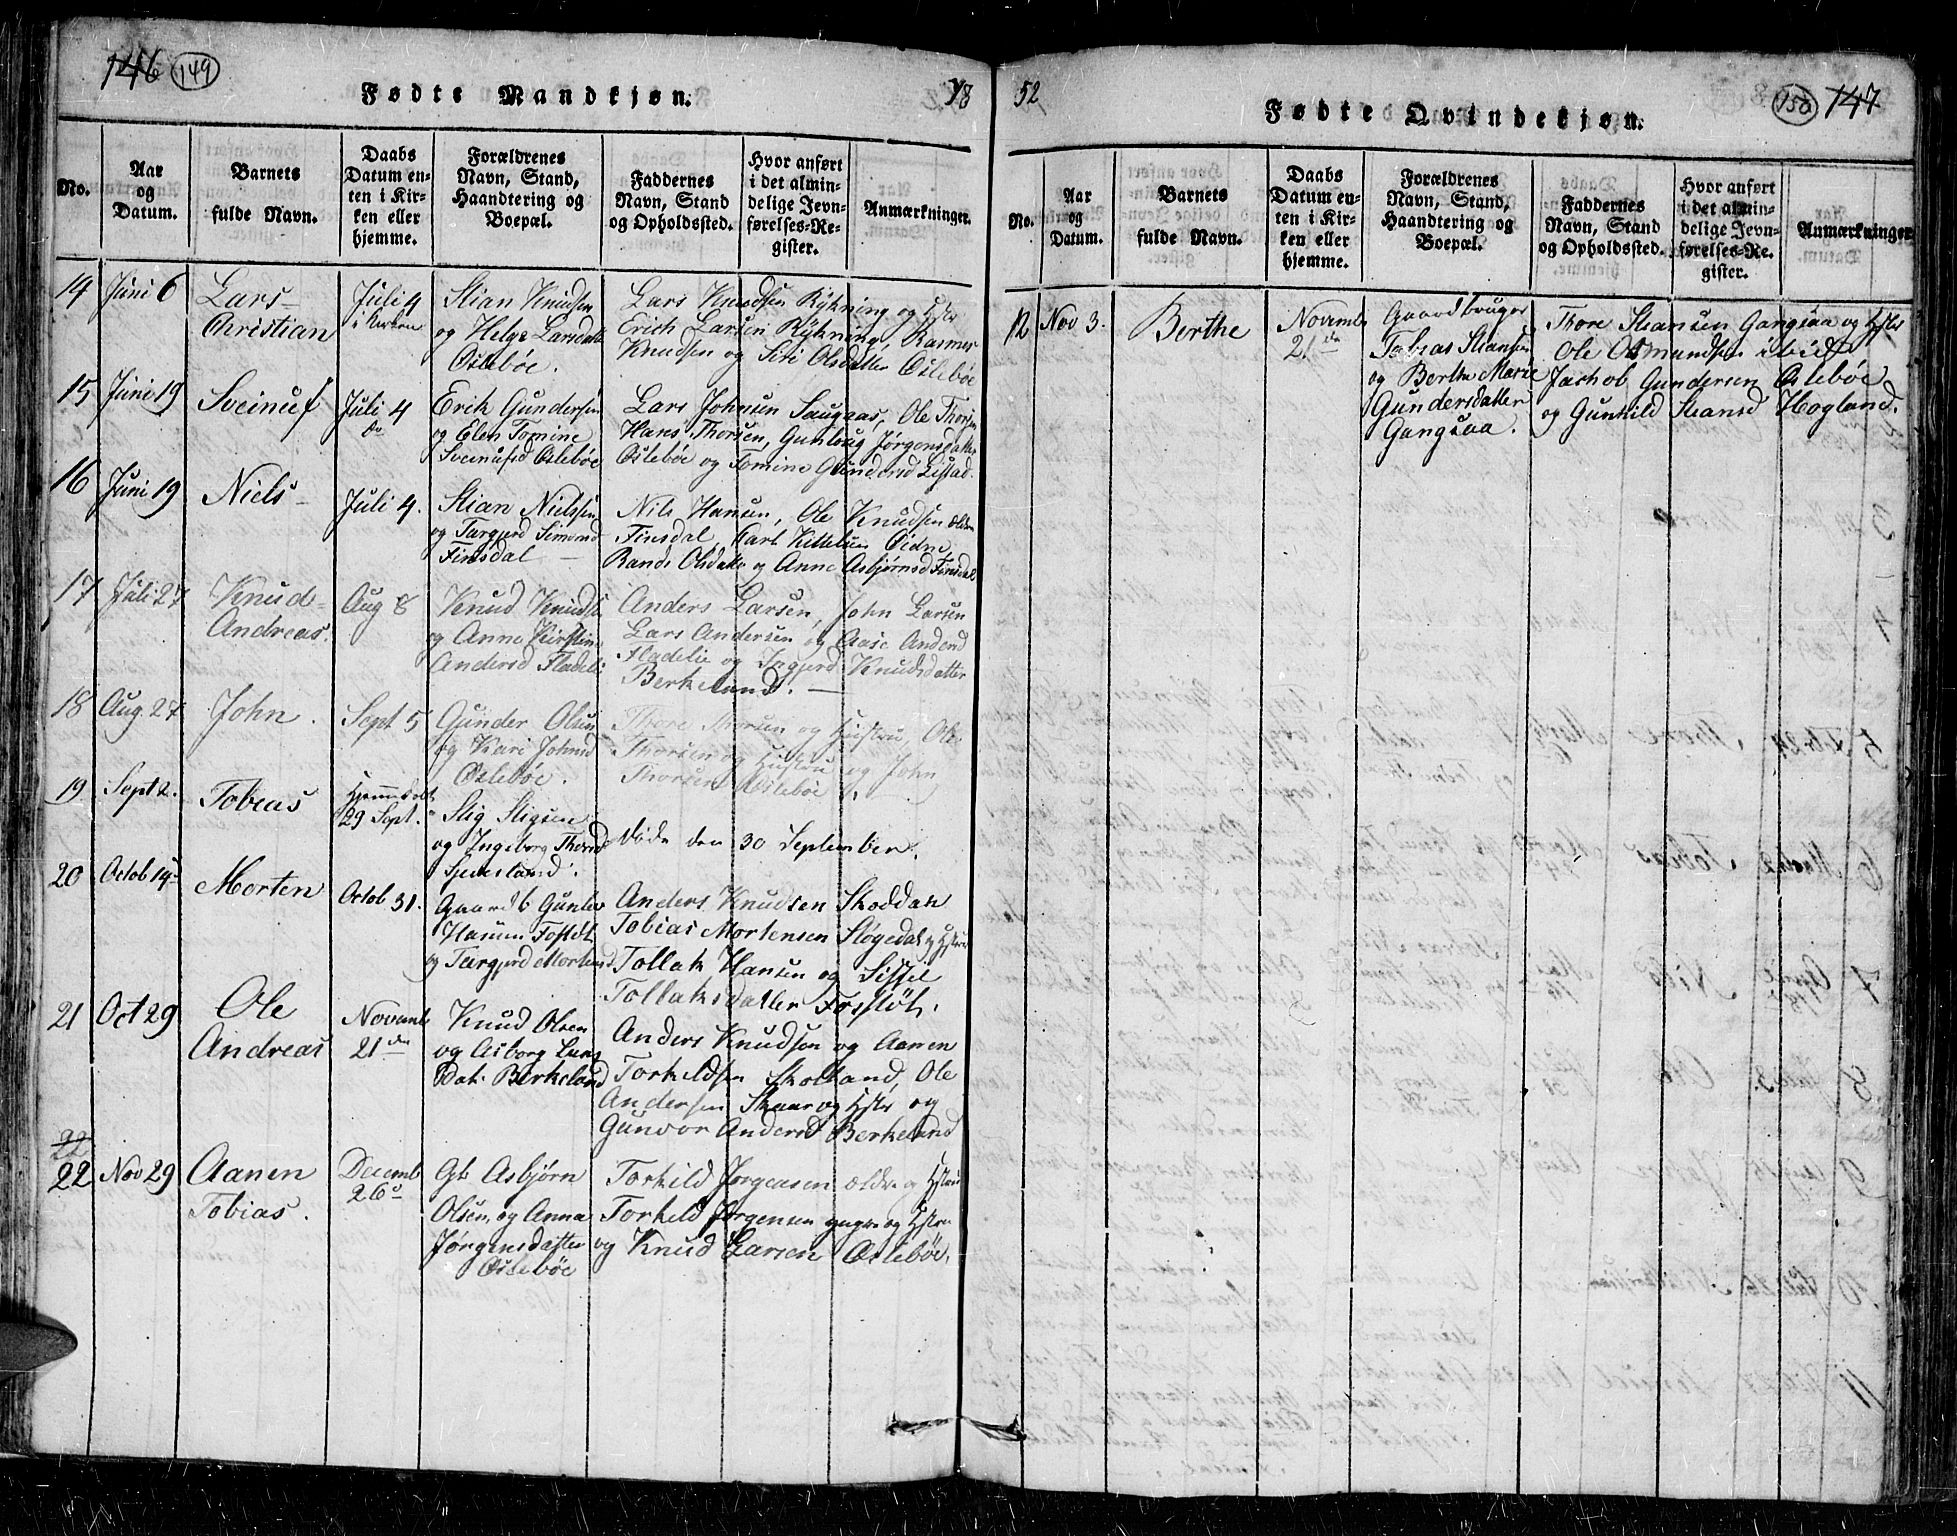 146 (149)
Fødte Mandkjøn.
18
No.
Aar
og
Datum.
Barnets
fulde Navn.
Daabs
Datum en-
ten i Kir-
ken eller
hjemme.
Forældrenes
Navn, Stand,
Haandtering og
Boepæl.
Faddernes
Navn, Stand
og Opholdssted.
Hvor anført
i det almin-
delige Jevn-
førelses-Re-
gister.
Anmærkninger.
14
Juni 6
Lars
Christian
Juli 4
i Kirken
Stian Knudsen
og Helge Larsdatt
Oslebøe.
Lars Knudsen Rykning og Hstr
Erich Larsen Rykning, Rasmus
Knudsen og Siri Olsdatter Oslebøe
15
Juni 19
Sveinuf
Juli 4
Erik Gundersen
og Elen Tomine
Sveinufsd Oslebøe
Lars Johnsen Saugaas, Ole Thorsen
Hans Thorsen, Gunloug Jørgensdatter
Oslebøe og Tomine Gundersd Lystad.
16
Juni 19
Niels
Juli 4.
Stian Nielssen
og Targjerd Simonsd
Finsdal
Nils Hansen, Ole Knudsen ældre
Finsdal, Carl Kittelsen Øidne,
Randi Olsdatter og Anne Asbjørnsd Finsdal
17
Juli 27
Knud
Andreas.
Aug 8
Knud Knuds
og Anne Kirstin
Andersd Fladeli
Anders Larsen, John Larsen
Lars Andersen og Aase Andersd
Fladelie og Ingjerd Knudsdatter
Berkeland.
18
Aug. 27
John.
Sept 5
Gunder Olsen
og Kari Johnsd
Oslebøe.
Thore Thorsen og Hustru, Ole
Thorsen og Hustru og John
Thorsen Oslebøe.
19
Sept 2.
Tobias
Hjemmedøbt
29 Sept.
Stig Stigsen
og Ingeborg Thorsd
Døde den 30 September.
20
Octob 19
Morten
Octob 31.
Gaardb Gunler
Hansen Fosslöt
og Targjerd Mortensd
Anders Knudsen Skoddan
Tobias Mortensen Sløgedal og Hstru
Tollak Hansen og Sissel
Tollaksdatter Fosslöt.
21
Oct 29
Ole
Andreas
Novemb
21 de
Knud Olsen
og Asborg Lars
Dat. Berkeland
Anders Knudsen og Aanen
Torkildsen Skolland, Ole
Andersen Skaar og Hstr og
Gunvor Andersd Berkeland
22
22
Nov 29
Aanen
Tobias.
Decemb
26
Gb Asbjørn
Olsen og Anna
Jørgensdatter
Oslebøe
Torkild Jørgensen ældre og Hstru
Torkild Jørgensen yngre og Hstru
og Knud Larsen Oslebøe.
52
(150) 147
Fødte Qvindekjøn.
No.
Aar
og
Datum.
Barnets
fulde Navn.
Daabs
Datum en-
ten i Kir-
ken eller
hjemme.
Forældrenes
Navn, Stand,
Haandtering og
Boepæl.
Faddernes
Navn, Stand
og Opholdssted.
Hvor anført
i det almin-
delige Jevn-
førelses-Re-
gister.
Anmærkninger
12
Nov 3.
Berthe
Novemb
21 de
Gaardbruger
Tobias Stiansen
og Berthe Marie
Gundersdatter
Gangsaa.
Thore Stiansen Gangsaa og Hstr
Ole Osmundsen ibid
Jachob Gundersen Oslebøe
og Gunhild Stiansd Hogland.